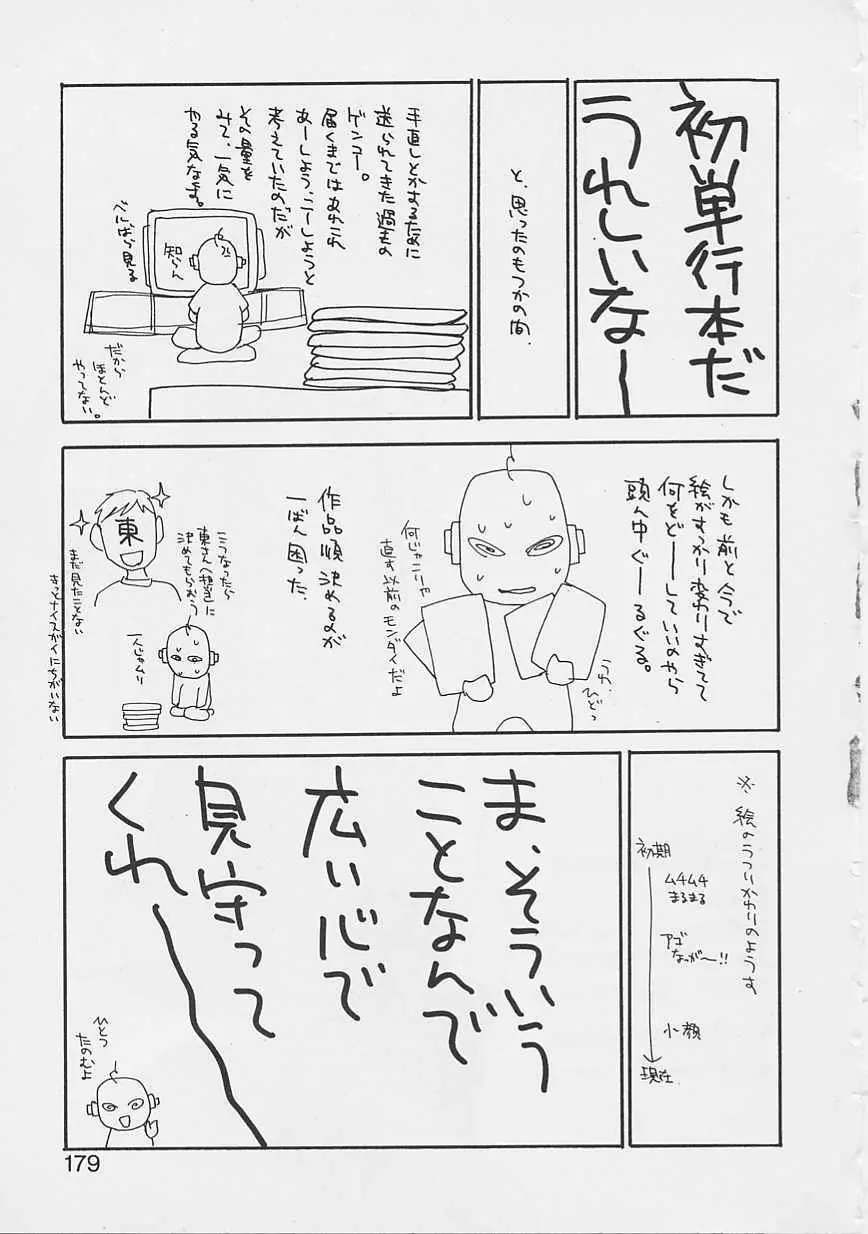 初単行本だ
うれしいなー
と、思ったのもつかの間、
手直しとかするために
送られてきた過去の
ゲンコー。
届くまではあれこれ
あーしよう、こーしようと
考えていたのだが
その量を
みて、一気に
やる気なます。
べにばら見る
知らん
だから
ほとんど
やってない。
しかも前と今で
絵がすっかり変わりすぎてて
何をどーしていいのやら
頭ん中ぐーるぐる。
うわ、
ひどっ
何じゃこりゃ
直す以前のモンダイだよ
作品順決めるのが
一ばん困った。
こうなったら
東さん(担当)に
決めてもらおう
一人じゃムリ
東
まだ見たことない
きっとナイスガイにちがいない
※絵のうつりかわりのようす
初期
ムチムチ
まるまる
アゴ
なっが〜!!
小顔
現在
ま、そういう
ことなんで
広い心で
見守って
くれ〜
ひとつ
たのむよ
179